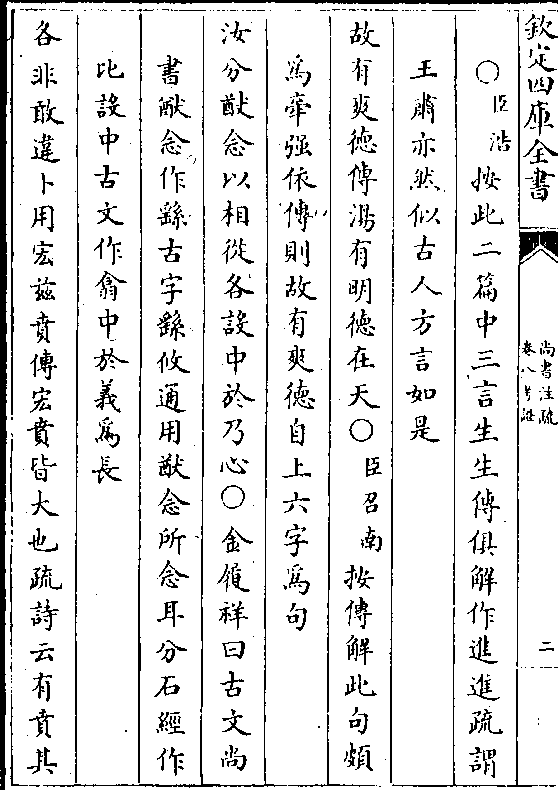 欽定四庫全書
尚書注疏
卷八考證
二
○臣浩按此二篇中三言生生傳俱解作進進疏謂
王肅亦然似古人方言如是
故有爽德傳湯有明德在天○臣召南按傳解此句頗
爲牽强依傳則故有爽德自上六字爲句
汝分猷念以相從各設中於乃心○金履祥曰古文尚
書猷念作繇古字繇攸通用猷念所念耳分石經作
比設中古文作翕中於義爲長
各非敢違卜用宏兹賁傳宏賁皆大也疏詩云有賁其